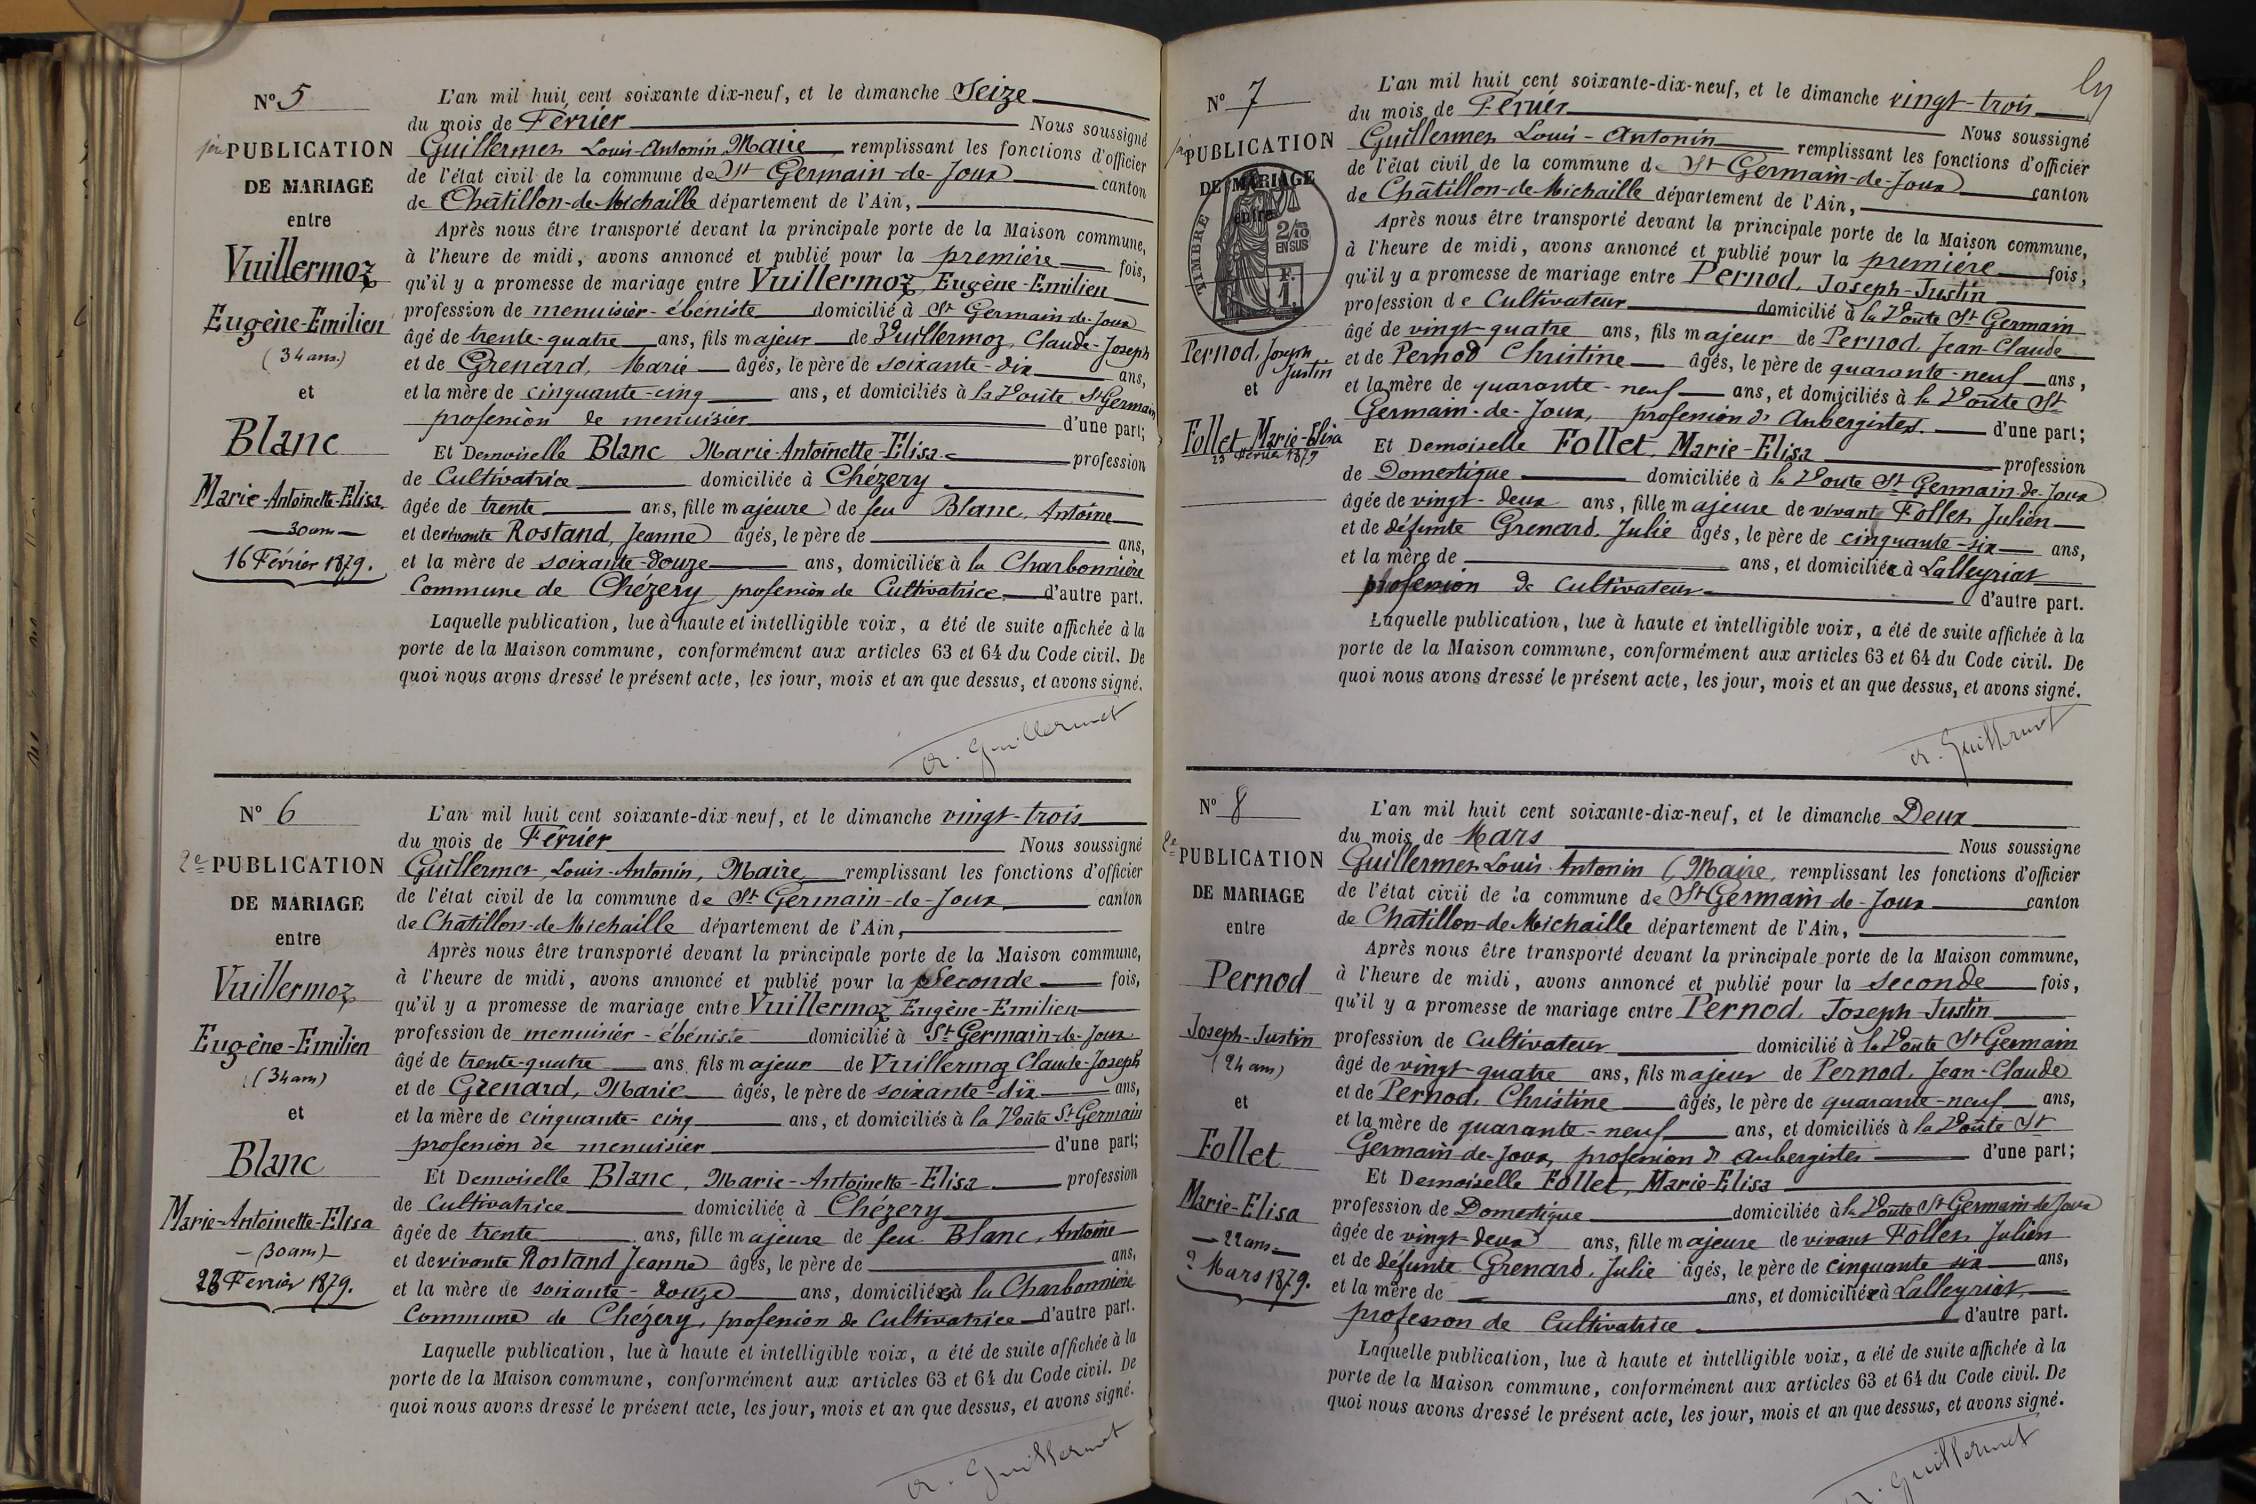 N° 5
1ère PUBLICATION
DE MARIAGE
entre
Vuillermoz
Eugène-Emilien
(34 ans.)
et
Blanc
Marie-Antoinette-Elisa.
30 ans
16 Février 1879.
L'an mil huit cent soixante dix-neuf, et le dimanche Seize
du mois de Février Nous soussigné
Guillermet Louis-Antonin Maire remplissant les fonctions d'officier
de l'état civil de la commune de St Germain-de-Joux canton
de Châtillon-de-Michaille département de l'Ain,
Après nous être transporté devant la principale porte de la Maison commune,
à l'heure de midi, avons annoncé et publié pour la première fois,
qu'il y a promesse de mariage entre Vuillermoz, Eugène-Emilien
profession de menuisier-ébéniste domicilié à St Germain-de-Joux
âgé de trente-quatre ans, fils majeur de Vuillermoz, Claude-Joseph
et de Grenard, Marie âgés, le père de soixante-dix ans,
et la mère de cinquante-cinq ans, et domiciliés à la Voûte St Germain
profession de menuisier d'une part;
Et Demoiselle Blanc Marie-Antoinette-Elisa profession
de Cultivatrice domiciliée à Chézery
âgée de trente ans, fille majeure de feu Blanc, Antoine
et de vivante Rostand, Jeanne âgés, le père de ans,
et la mère de soixante-douze ans, domiciliée à la Charbonnière
Commune de Chézery profession de Cultivatrice d'autre part.
Laquelle publication, lue à haute et intelligible voix, a été de suite affichée à la
porte de la Maison commune, conformément aux articles 63 et 64 du Code civil. De
quoi nous avons dressé le présent acte, les jour, mois et an que dessus, et avons signé.
A. Guillermet
N° 6
2e PUBLICATION
DE MARIAGE
entre
Vuillermoz
Eugène-Emilien
(34 ans)
et
Blanc
Marie-Antoinette-Elisa
(30 ans)
23 Février 1879.
L'an mil huit cent soixante-dix-neuf, et le dimanche vingt-trois
du mois de Février Nous soussigné
Guillermet, Louis-Antonin, Maire, remplissant les fonctions d'officier
de l'état civil de la commune de St Germain-de-Joux canton
de Châtillon-de-Michaille département de l'Ain,
Après nous être transporté devant la principale porte de la Maison commune,
à l'heure de midi, avons annoncé et publié pour la Seconde fois,
qu'il y a promesse de mariage entre Vuillermoz Eugène-Emilien
profession de menuisier-ébéniste domicilié à St Germain-de-Joux
âgé de trente-quatre ans fils majeur de Vuillermoz Claude-Joseph
et de Grenard, Marie âgés, le père de soixante-dix ans,
et la mère de cinquante-cinq ans, et domiciliés à la Voûte St Germain
profession de menuisier d'une part;
Et Demoiselle Blanc, Marie-Antoinette-Elisa profession
de Cultivatrice domiciliée à Chézery
âgée de trente ans, fille majeure de feu Blanc, Antoine
et de vivante Rostand Jeanne âgés, le père de ans,
et la mère de soixante-douze ans, domiciliée à la Charbonnière
Commune de Chézery, profession de Cultivatrice d'autre part.
Laquelle publication, lue à haute et intelligible voix, a été de suite affichée à la
porte de la Maison commune, conformément aux articles 63 et 64 du Code civil. De
quoi nous avons dressé le présent acte, les jour, mois et an que dessus, et avons signé.
A. Guillermet
N° 7
1ère PUBLICATION
DE MARIAGE
entre
TIMBRE
2/10
EN SUS
F.
1.
Pernod, Joseph
Justin
et
Follet Marie-Elisa
23 Février 1879
L'an mil huit cent soixante-dix-neuf, et le dimanche vingt-trois
du mois de Février Nous soussigné
Guillermet Louis-Antonin remplissant les fonctions d'officier
de l'état civil de la commune de St Germain-de-Joux canton
de Châtillon-de-Michaille département de l'Ain,
Après nous être transporté devant la principale porte de la Maison commune,
à l'heure de midi, avons annoncé et publié pour la première fois,
qu'il y a promesse de mariage entre Pernod, Joseph-Justin
profession de Cultivateur domicilié à la Voûte St Germain
âgé de vingt-quatre ans, fils majeur de Pernod, Jean-Claude
et de Pernod Christine âgés, le père de quarante-neuf ans,
et la mère de quarante-neuf ans, et domiciliés à la Voûte St
Germain-de-Joux, profession d'Aubergistes. d'une part;
Et Demoiselle Follet, Marie-Elisa profession
de Domestique domiciliée à la Voute St Germain-de-Joux
âgée de vingt-deux ans, fille majeure de vivant Follet, Julien
et de défunte Grenard, Julie âgés, le père de cinquante-six ans,
et la mère de ans, et domiciliée à Lalleyriat
profession de Cultivateur d'autre part.
Laquelle publication, lue à haute et intelligible voix, a été de suite affichée à la
porte de la Maison commune, conformément aux articles 63 et 64 du Code civil. De
quoi nous avons dressé le présent acte, les jour, mois et an que dessus, et avons signé.
A. Guillermet
N° 8
2e PUBLICATION
DE MARIAGE
entre
Pernod
Joseph-Justin
(24 ans)
et
Follet
Marie-Elisa
22 ans
2 Mars 1879.
L'an mil huit cent soixante-dix-neuf, et le dimanche Deux
du mois de Mars Nous soussigné
Guillermet Louis Antonin, Maire, remplissant les fonctions d'officier
de l'état civil de la commune de St Germain-de-Joux canton
de Châtillon-de-Michaille département de l'Ain,
Après nous être transporté devant la principale porte de la Maison commune,
à l'heure de midi, avons annoncé et publié pour la seconde fois,
qu'il y a promesse de mariage entre Pernod, Joseph-Justin
profession de Cultivateur domicilié à la Voûte St Germain
âgé de vingt-quatre ans, fils majeur de Pernod, Jean-Claude
et de Pernod, Christine âgés, le père de quarante-neuf ans,
et la mère de quarante-neuf ans, et domiciliés à la Voûte St
Germain-de-Joux, profession d'aubergistes d'une part;
Et Demoiselle Follet, Marie-Elisa
profession de Domestique domiciliée à la Voûte St Germain de Joux
âgée de vingt-deux ans, fille majeure de vivant Follet, Julien
et de défunte Grenard, Julie âgés, le père de cinquante six ans,
et la mère de ans, et domiciliée à Lalleyriat,
profession de Cultivatrice d'autre part.
Laquelle publication, lue à haute et intelligible voix, a été de suite affichée à la
porte de la Maison commune, conformément aux articles 63 et 64 du Code civil. De
quoi nous avons dressé le présent acte, les jour, mois et an que dessus, et avons signé.
A. Guillermet